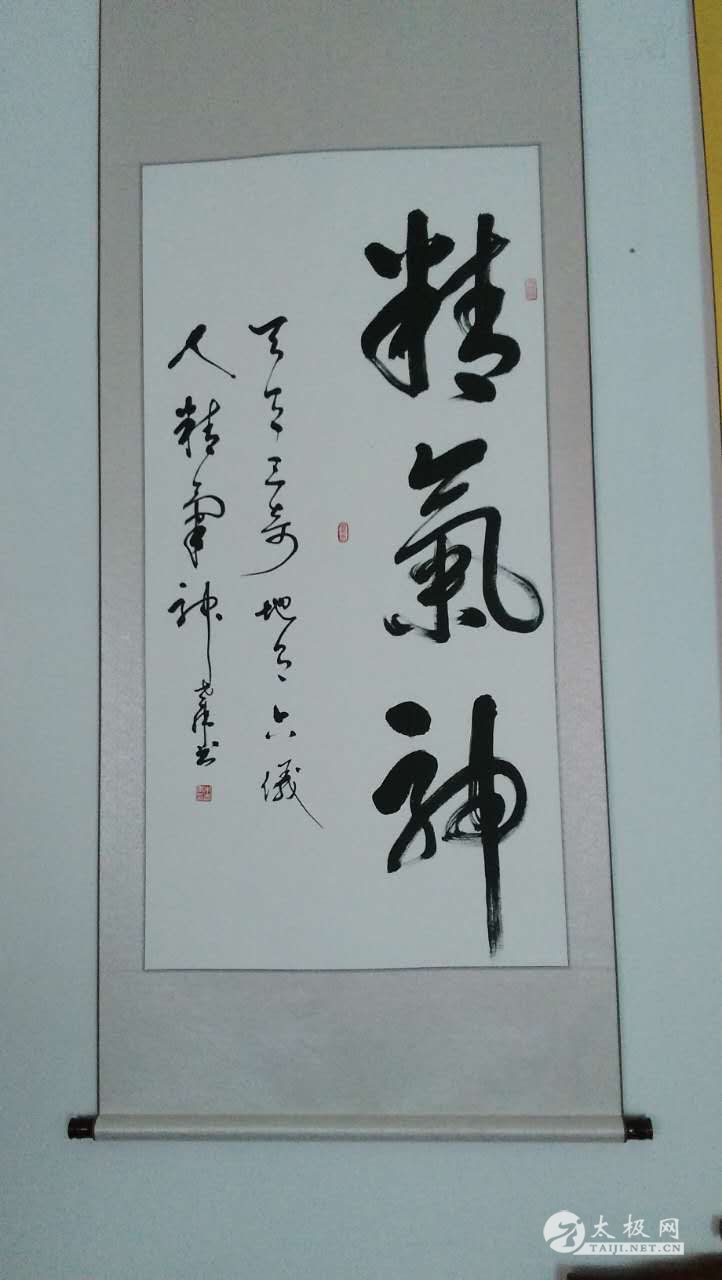 精氣神
天有三奇地有六儀
人精氣神
书
太极网
TAIJI.NET.CN